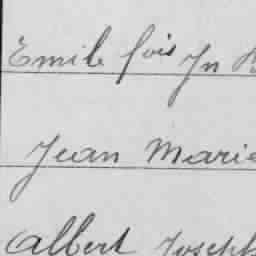 Emile fois Jn
Jean Marie
Albert Joseph